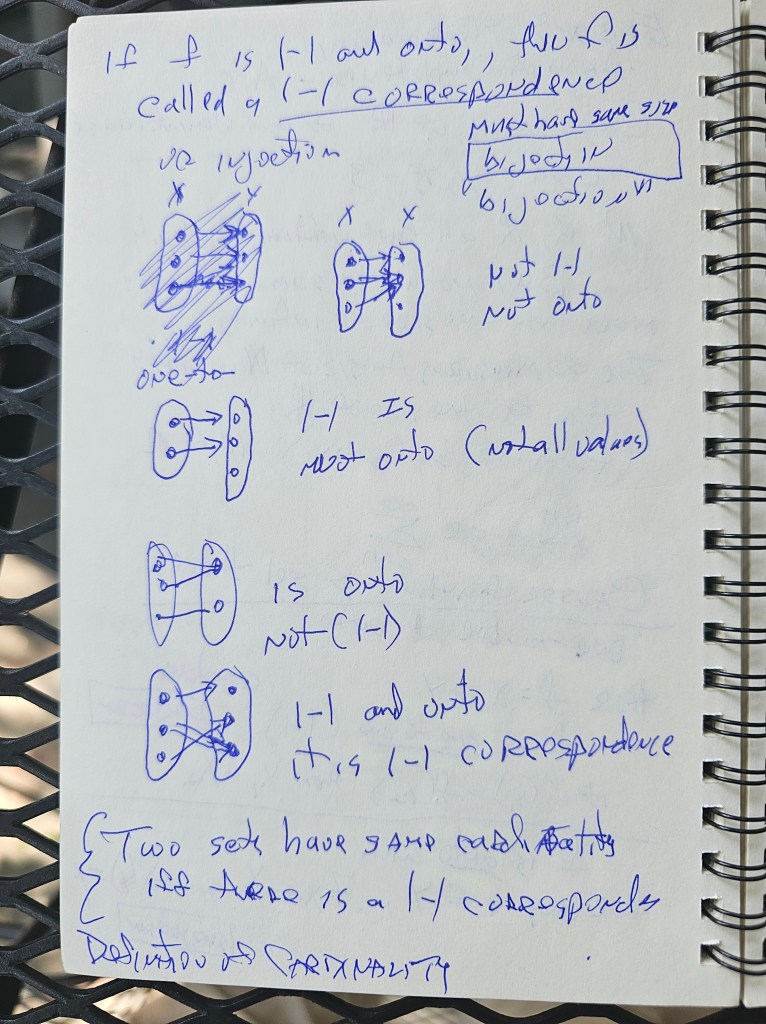 If f is 1-1 and onto,, then f is
called a 1-1 CORRESPONDENCE
must have same size
or injection
bijectIN
"bijection"
X Y
X Y
Not 1-1
Not onto
one-to-
1-1 Is
not onto (not all values)
is onto
not (1-1)
1-1 and onto
it is 1-1 CORRESpondence
Two sets have SAME
iff there is a 1-1
Definition of CARDINALITY